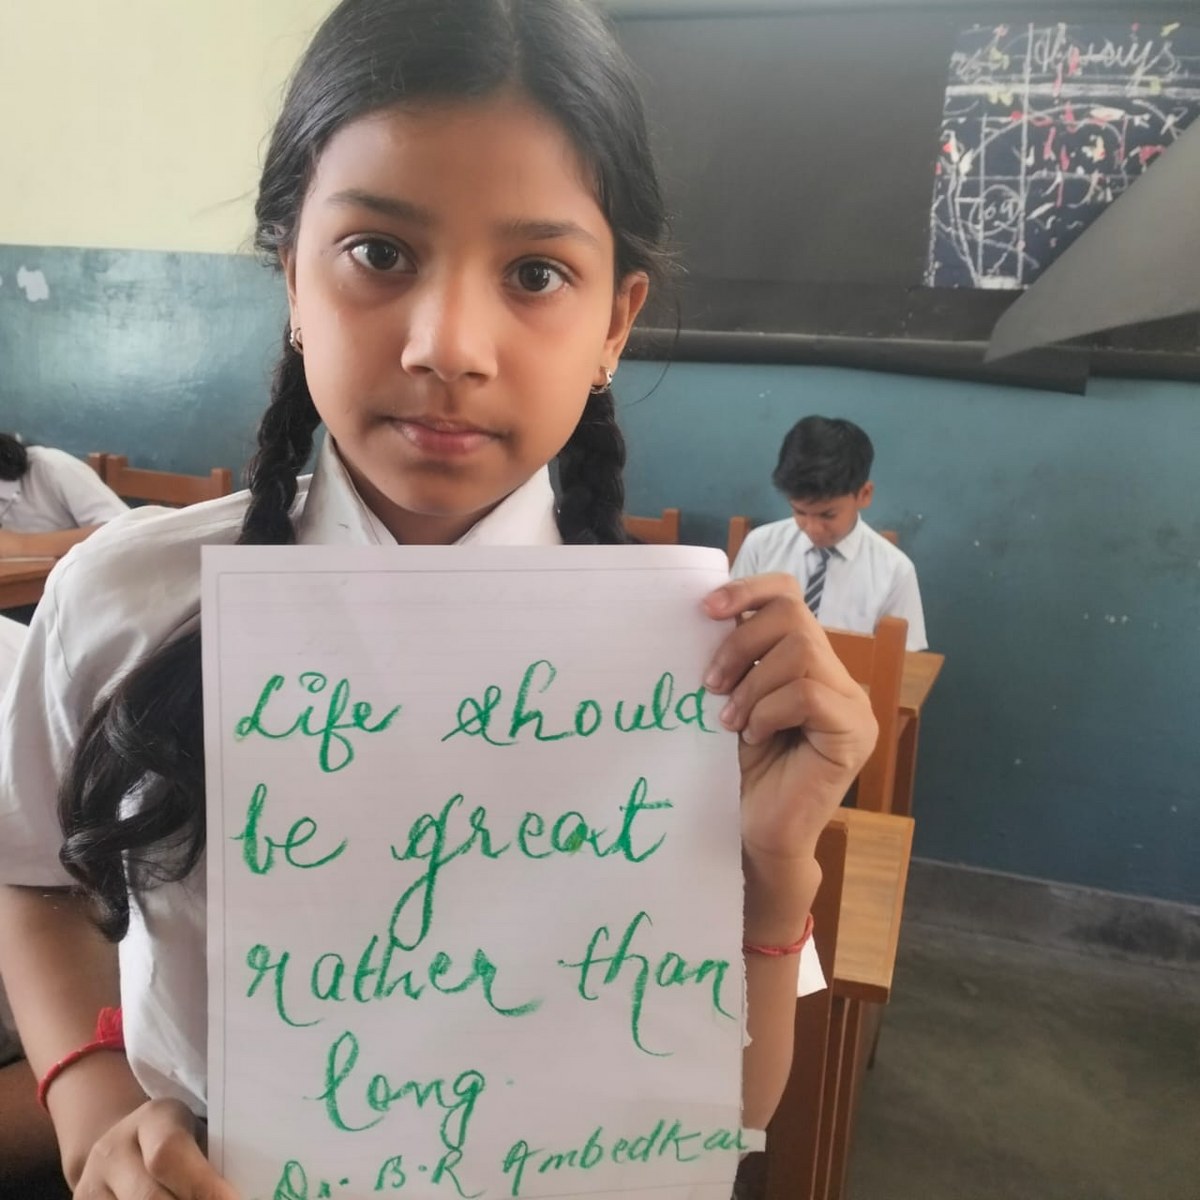 Life should
be great
rather than
long.
Dr. B.R Ambedkar